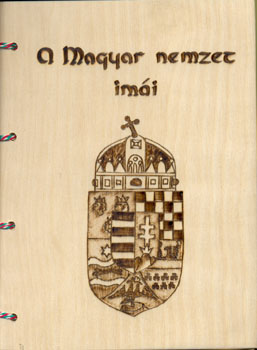 A Magyar nemzet
imái